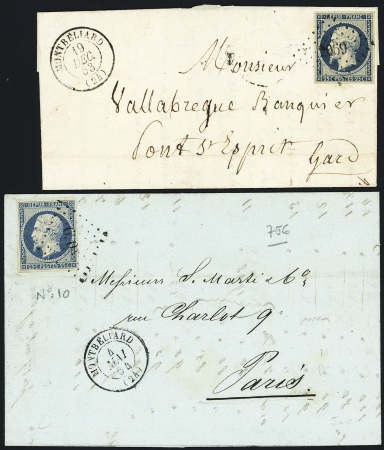 MONTBÉLIARD
19
DEC
53
(24)
REPUB. FRANC.
25 C POSTES 25 C
Monsieur
Vallabregue Banquier
Pont St Esprit
Gard
REPUB. FRANC.
25 C POSTES 25 C
756
No 10
Messieurs S. Marti & Co
rue Charlot 9
Paris
MONTBÉLIARD
4
MAI
54
(24)